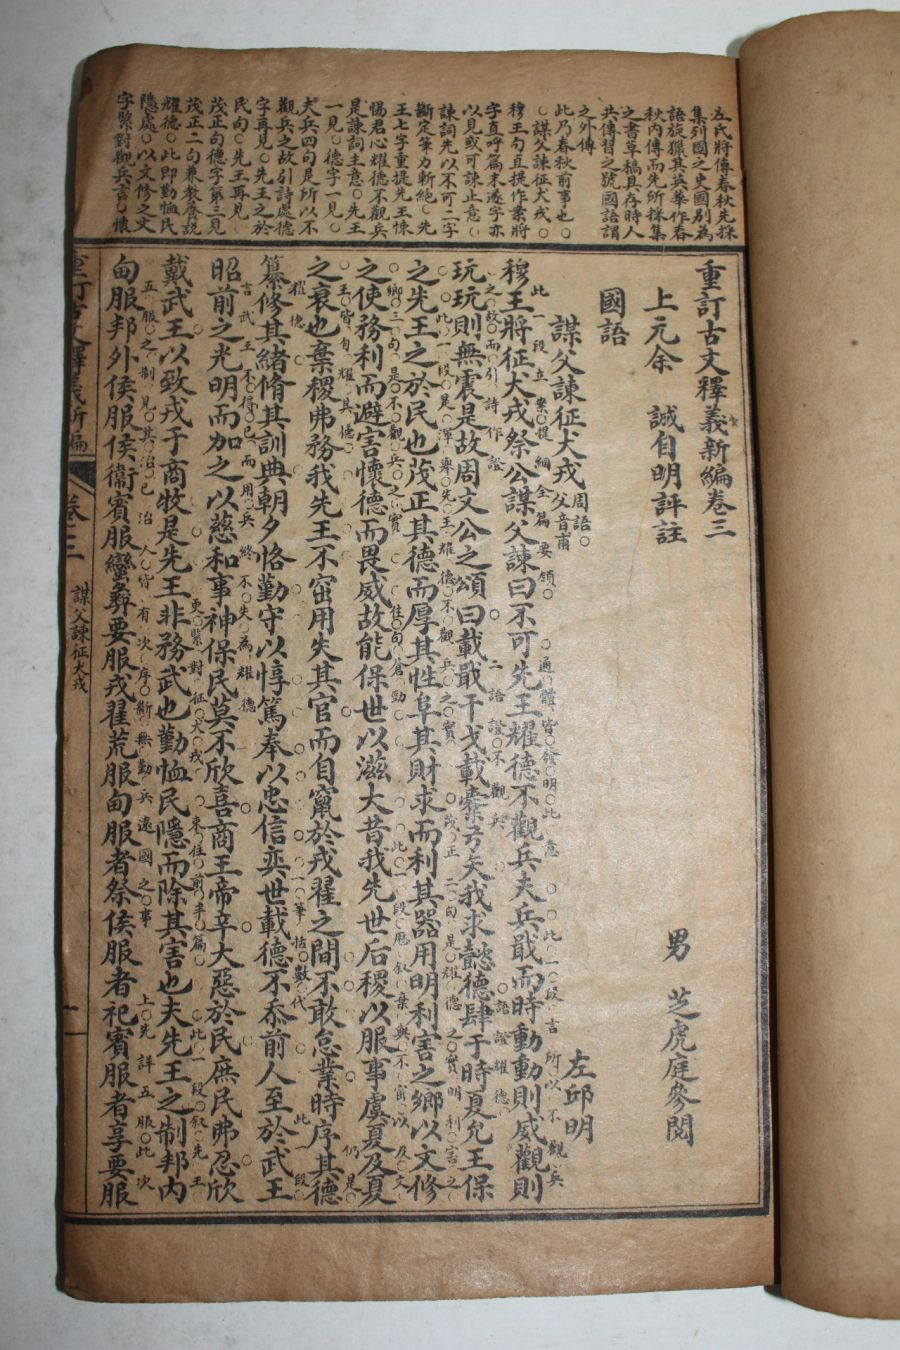 左氏將傳春秋先採
集列國之史國別為
語旋獵其英華作春
秋內傳而先所採集
之書草稿具存時人
共傳習之號國語謂
之外傳
此乃春秋前事也○
○謀父諫征犬戎○
穆王句直提作案將
字直呼篇末遂字亦
以見或可諫止意○
諫詞先以不可二字
斷定筆力斬絕○先
王七字重提先王悚
惕君心耀德不觀兵
是諫詞主意○先王
一見○德字一見○
夫兵四句是所以不
觀兵之故引詩處德
字再見○先王之於
民句○先王再見○
茂正句德字第三見
茂正二句兼教養說
耀德○此即勤恤民
隱處○以文修之文
字緊對觀兵言○懷
重訂古文釋義新編卷三
上元余 誠自明評註
男 芝虎庭參閱
國語
左邱明
謀父諫征犬戎 周語○父音甫
穆王將征犬戎祭公謀父諫曰不可先王耀德不觀兵夫兵戢而時動動則威觀則
玩玩則無震是故周文公之頌曰載戢干戈載櫜弓矢我求懿德肆于時夏允王保
之先王之於民也茂正其德而厚其性阜其財求而利其器用明利害之鄉以文修
之使務利而避害懷德而畏威故能保世以滋大昔我先世后稷以服事虞夏及夏
之衰也棄稷弗務我先王不窋用失其官而自竄於戎翟之間不敢怠業時序其德
纂修其緒脩其訓典朝夕恪勤守以惇篤奉以忠信奕世載德不忝前人至於武王
昭前之光明而加之以慈和事神保民莫不欣喜商王帝辛大惡於民庶民弗忍欣
戴武王以致戎于商牧是先王非務武也勤恤民隱而除其害也夫先王之制邦內
甸服邦外侯服侯衛賓服蠻彝要服戎翟荒服甸服者祭侯服者祀賓服者享要服
重訂古文釋義新編 卷三 謀父諫征犬戎 一